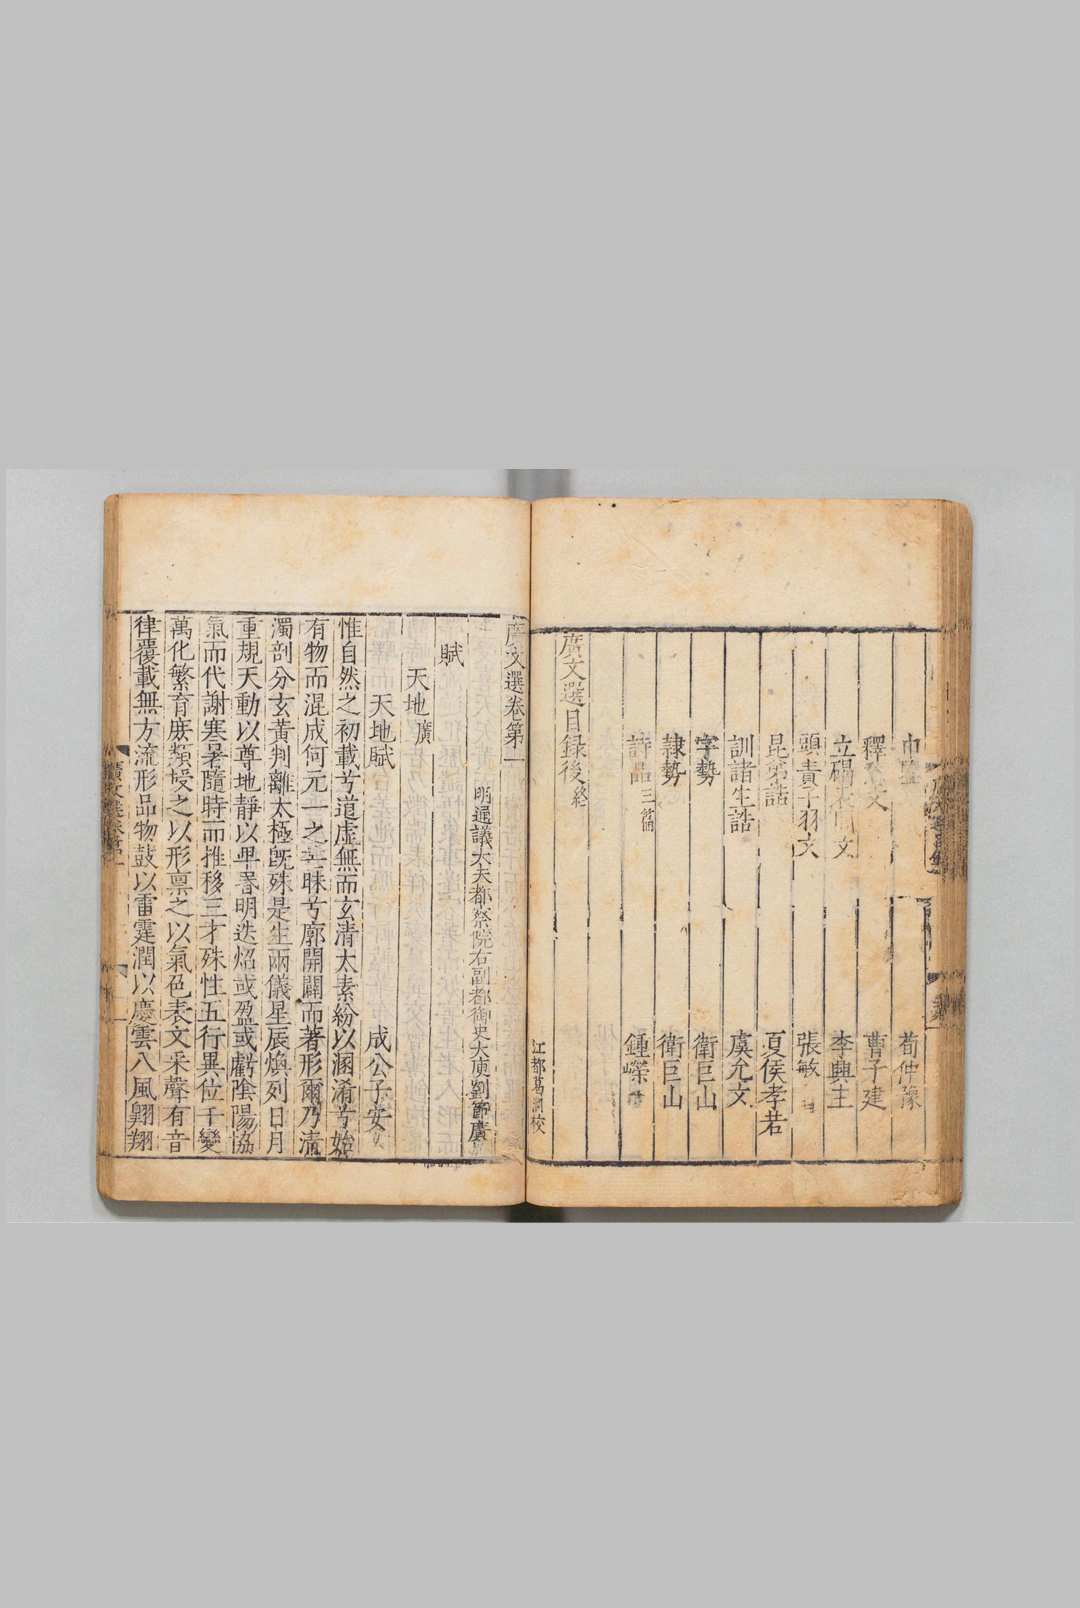 申鑒 荀仲豫
釋愁文 曹子建
立碣表門文 李興主
頭責子羽文 張敏
昆弟誥 夏侯孝若
訓諸生誥 虞允文
字勢 衛巨山
隸勢 衛巨山
詩品三首 鍾嶸
廣文選目録後終
江都葛澗校
廣文選卷第一
明通議大夫都察院右副都御史大庾劉節廣
賦
天地廣
天地賦 成公子安
惟自然之初載兮道虛無而玄清太素紛以溷淆兮始
有物而混成何元一之芒昧兮廓開闢而著形爾乃清
濁剖分玄黃判離太極旣殊是生兩儀星辰煥列日月
重規天動以尊地靜以卑昏明迭炤或盈或虧隂陽協
氣而代謝寒暑隨時而推移三才殊性五行異位千變
萬化繁育庶類授之以形禀之以氣色表文采聲有音
律覆載無方流形品物鼓以雷霆潤以慶雲八風翺翔
廣文選卷第一